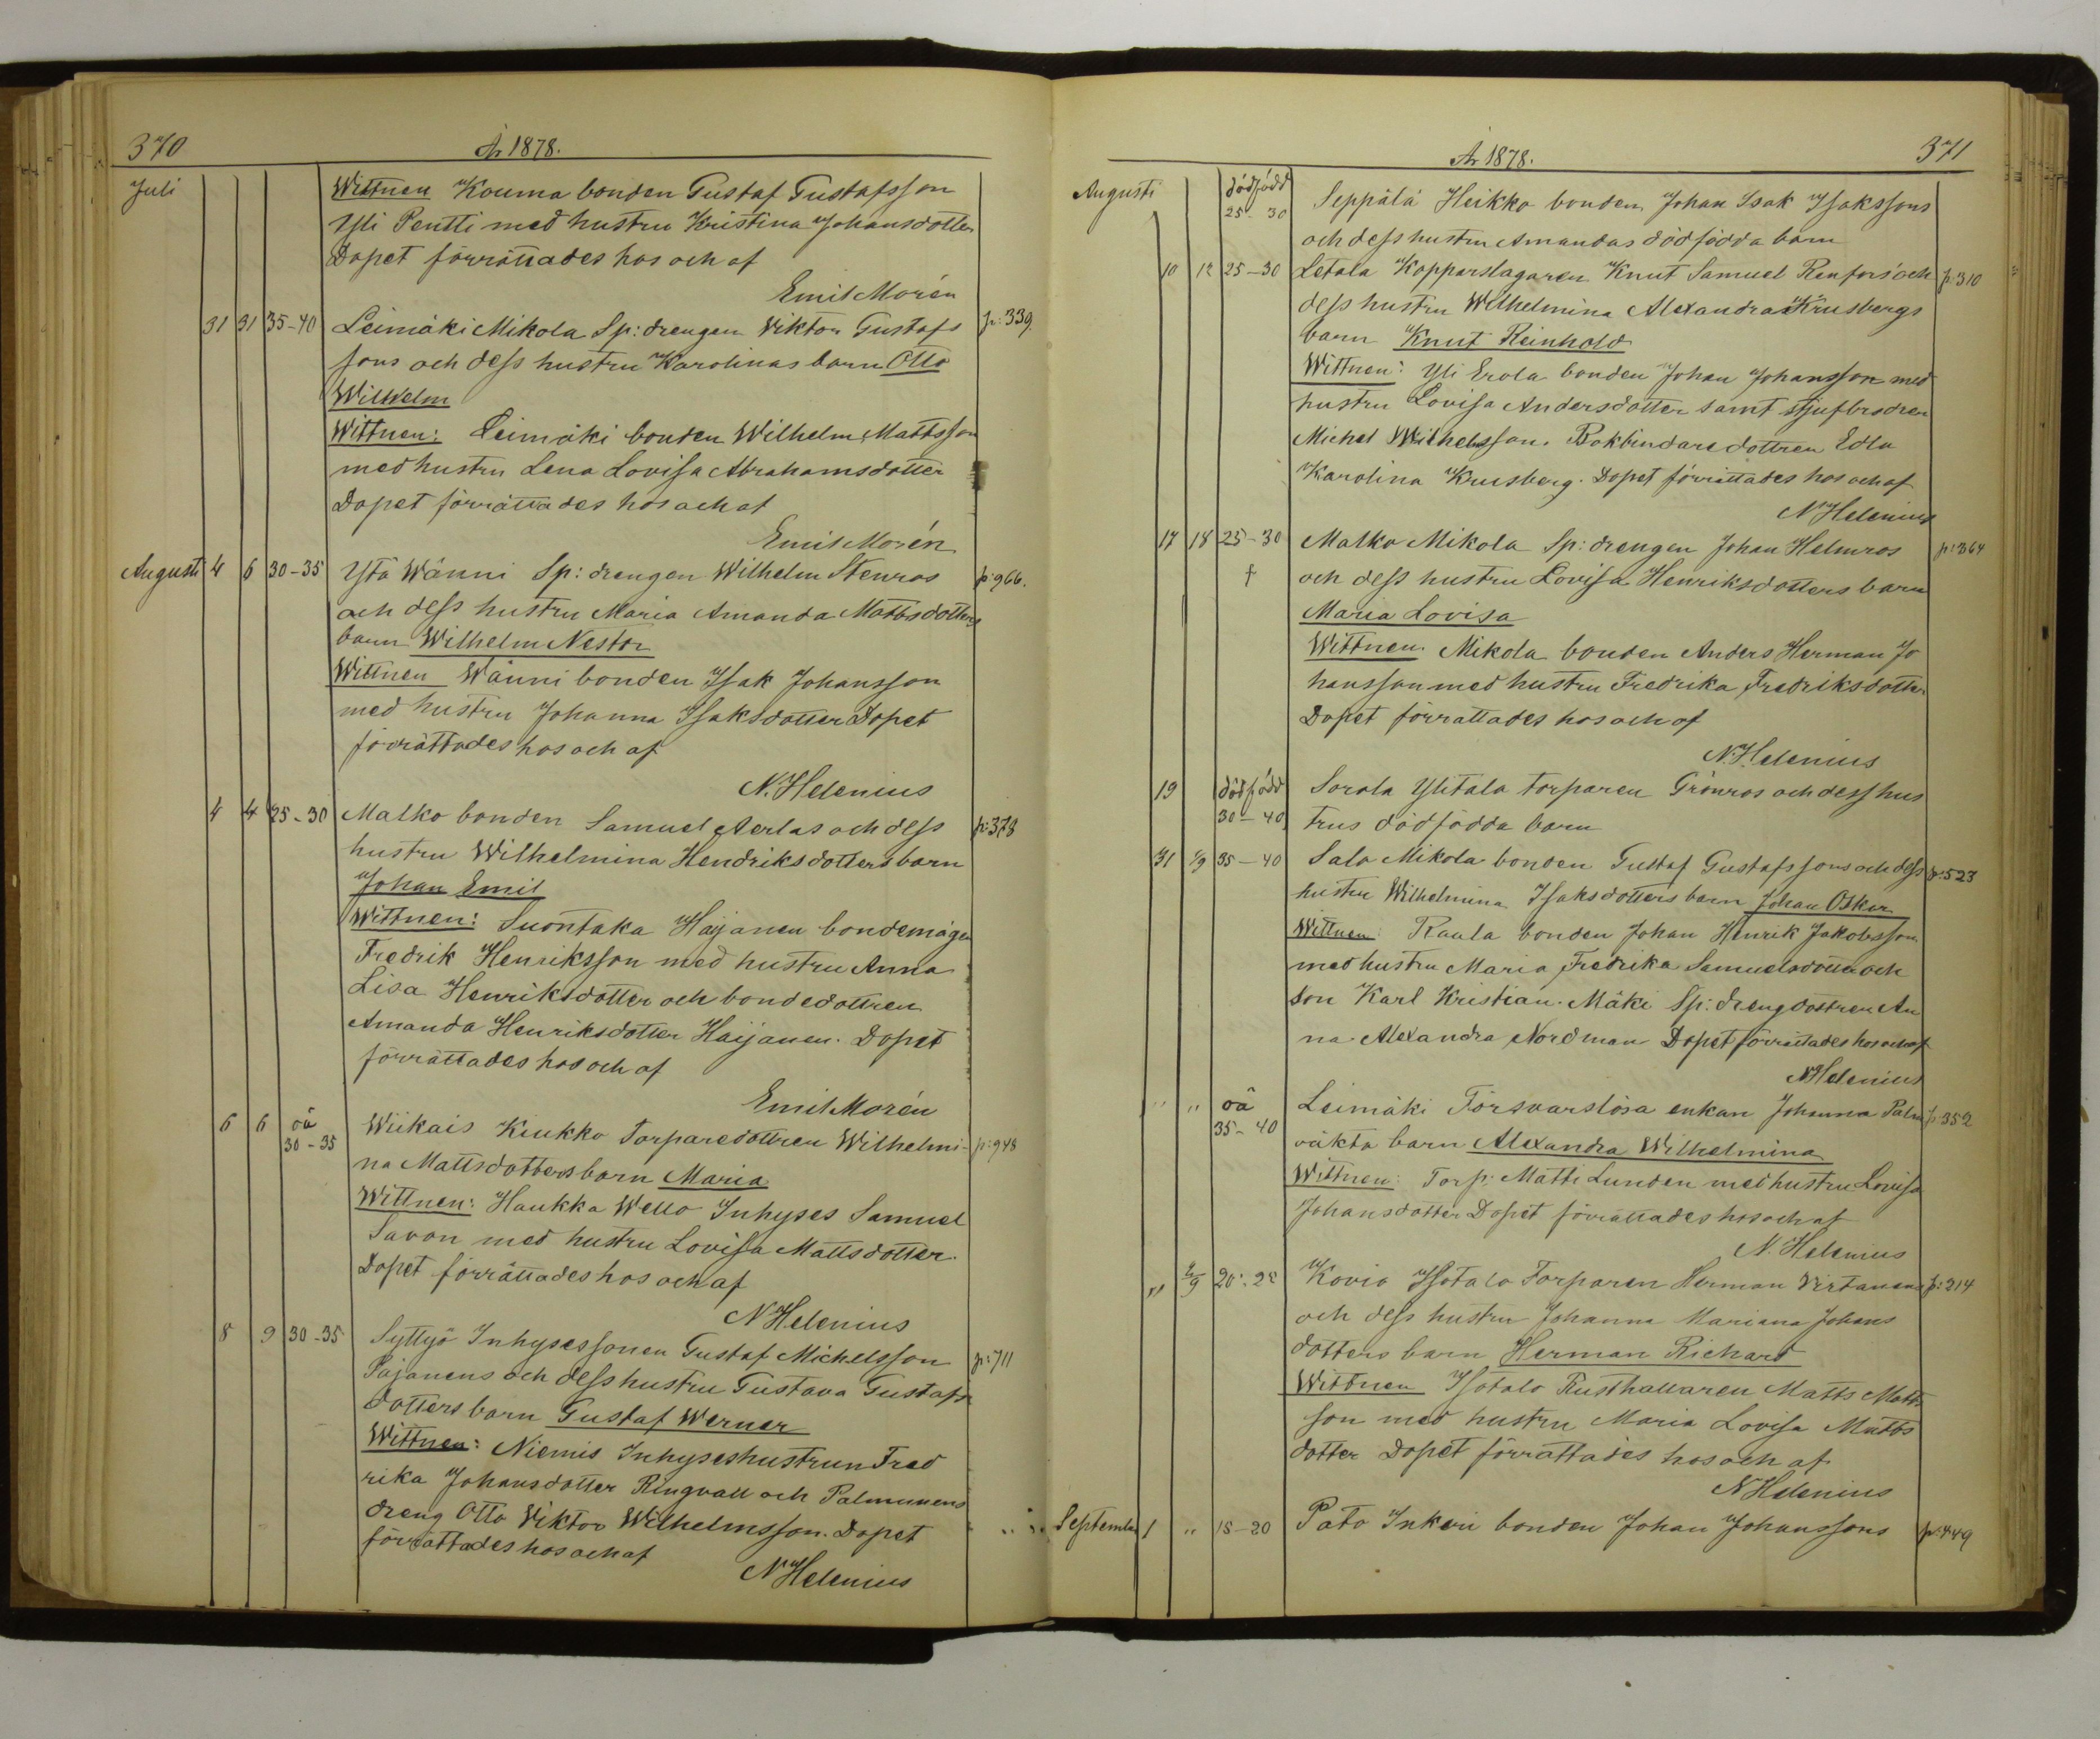 370
År 1878.
Juli
Wittnen Kouma bonden Gustaf Gustafsson
Yli Pentti med hustru Kristina Johansdotter
Dopet förrättades hos och af
Emil Morén
31 31 35-40 Leimäki Mikola Sp: drengen Viktor Gustafs p: 339
sons och dess hustru Karolinas barn Otto
Wilhelm
Wittnen: Leimäki bonden Wilhelm Mattsson
med hustru Lena Lovisa Abrahamsdotter
Dopet förrättades hos och af
Emil Morén
Augusti 4 6 30-35 Yttä Wänni Sp: drengen Wilhelm Stenros p: 966.
och dess hustru Maria Amanda Mattsdotters
barn Wilhelm Nestor
Wittnen Wänni bonden Isak Johansson
med hustru Johanna Isaksdotter Dopet
förrättades hos och af
N. Helenius
4 4 25-30 Malko bonden Samuel Aerlas och dess p: 378
hustru Wilhelmina Hendriksdotters barn
Johan Emil
Wittnen: Suontaka Haijanen bondemågen
Fredrik Henriksson med hustru Anna
Lisa Henriksdotter och bondedottren
Amanda Henriksdotter Haijanen. Dopet
förrättades hos och af
Emil Morén
6 6 oä 30-35 Wiikais Kiukko Torparedottren Wilhelmi- p: 948
na Mattsdotters barn Maria
Wittnen: Haukka Wello Inhyses Samuel
Savon med hustru Lovisa Mattsdotter.
Dopet förrättades hos och af
N Helenius
8 9 30-35 Syttyö Inhysessonen Gustaf Michelsson p: 711
Pajanens och dess hustru Gustava Gustafs
dotters barn Gustaf Werner
Wittnen: Niemis Inhyseshustrun Fred
rika Johansdotter Ringvall och Palmunens
dreng Otto Viktor Wilhelmsson. Dopet
förrättades hos och af
N Helenius
År 1878.
371
Augusti dödfödd 25-30 Seppälä Heikko bonden Johan Isak Isakssons
och dess hustru Amandas dödfödda barn
10 12 25-30 Letala Kopparslagaren Knut Samuel Renfors och p: 310
dess hustru Wilhelmina Alexandra Krusbergs
barn Knut Reinhold
Wittnen: Yli Erola bonden Johan Johansson med
hustru Lovisa Andersdotter samt stjufbrodren
Michel Wilhelsson. Bokbindaredottren Edla
Karolina Krusberg. Dopet förrättades hos och af
N Helenius
17 18 25-30 Malko Mikola Sp: drengen Johan Helmros p: 364
† och dess hustru Lovisa Henriksdotters barn
Maria Lovisa
Wittnen. Mikola bonden Anders Herman Jo
hansson med hustru Fredrika Fredriksdotter
Dopet förrättades hos och af
N. Helenius
19 dödfödd 30-40 Sorola Ylitalo torparen Grönros och dess hus
trus dödfödda barn
31 1/9 35-40 Salo Mikola bonden Gustaf Gustafssons och dess p: 523
hustru Wilhelmina Isaksdotters barn Johan Oskar
Wittnen: Raula bonden Johan Henrik Jakobsson
med hustru Maria Fredrika Samuelsdotter och
son Karl Kristian. Mäki Sp: drengdottren An
na Alexandra Nordman Dopet förrättades hos och af
N Helenius
" " oä 35-40 Leimäki Försvarslösa enkan Johanna Palm p: 352
oäkta barn Alexandra Wilhelmina
Wittnen: Torp: Matti Lunden med hustru Lovisa
Johansdotter Dopet förrättades hos och af
N. Helenius
" 2/9 20-25 Kovio Isotalo Torparen Herman Virtanens p: 214
och dess hustru Johanna Mariana Johans
dotters barn Herman Richard
Wittnen Isotalo Rusthallaren Matts Matts
son med hustru Maria Lovisa Matts
dotter Dopet förrättades hos och af
N Helenius
September 1 " 15-20 Pato Inkeri bonden Johan Johanssons p: 449